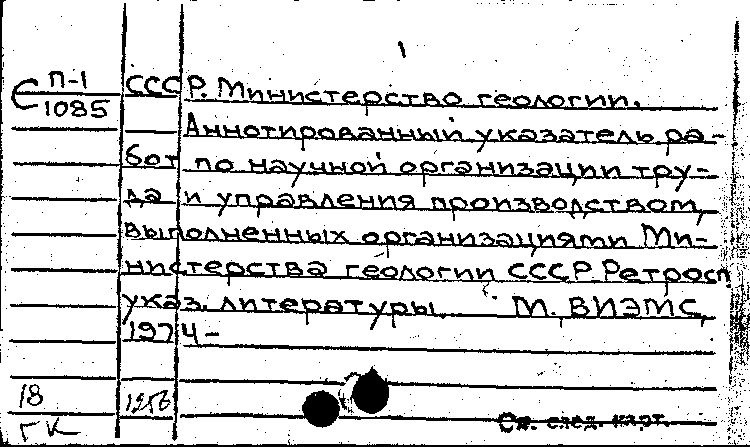 1
С П-1
1085
СССР. Министерство геологии.
Аннотированный указатель ра-
бот по научной организации тру-
да и управления производством,
выполненных организациями Ми-
нистерства геологии СССР. Ретросп
указ. литературы. М. ВИЭМС,
1974-
18
1256
ГК
См. след. карт.